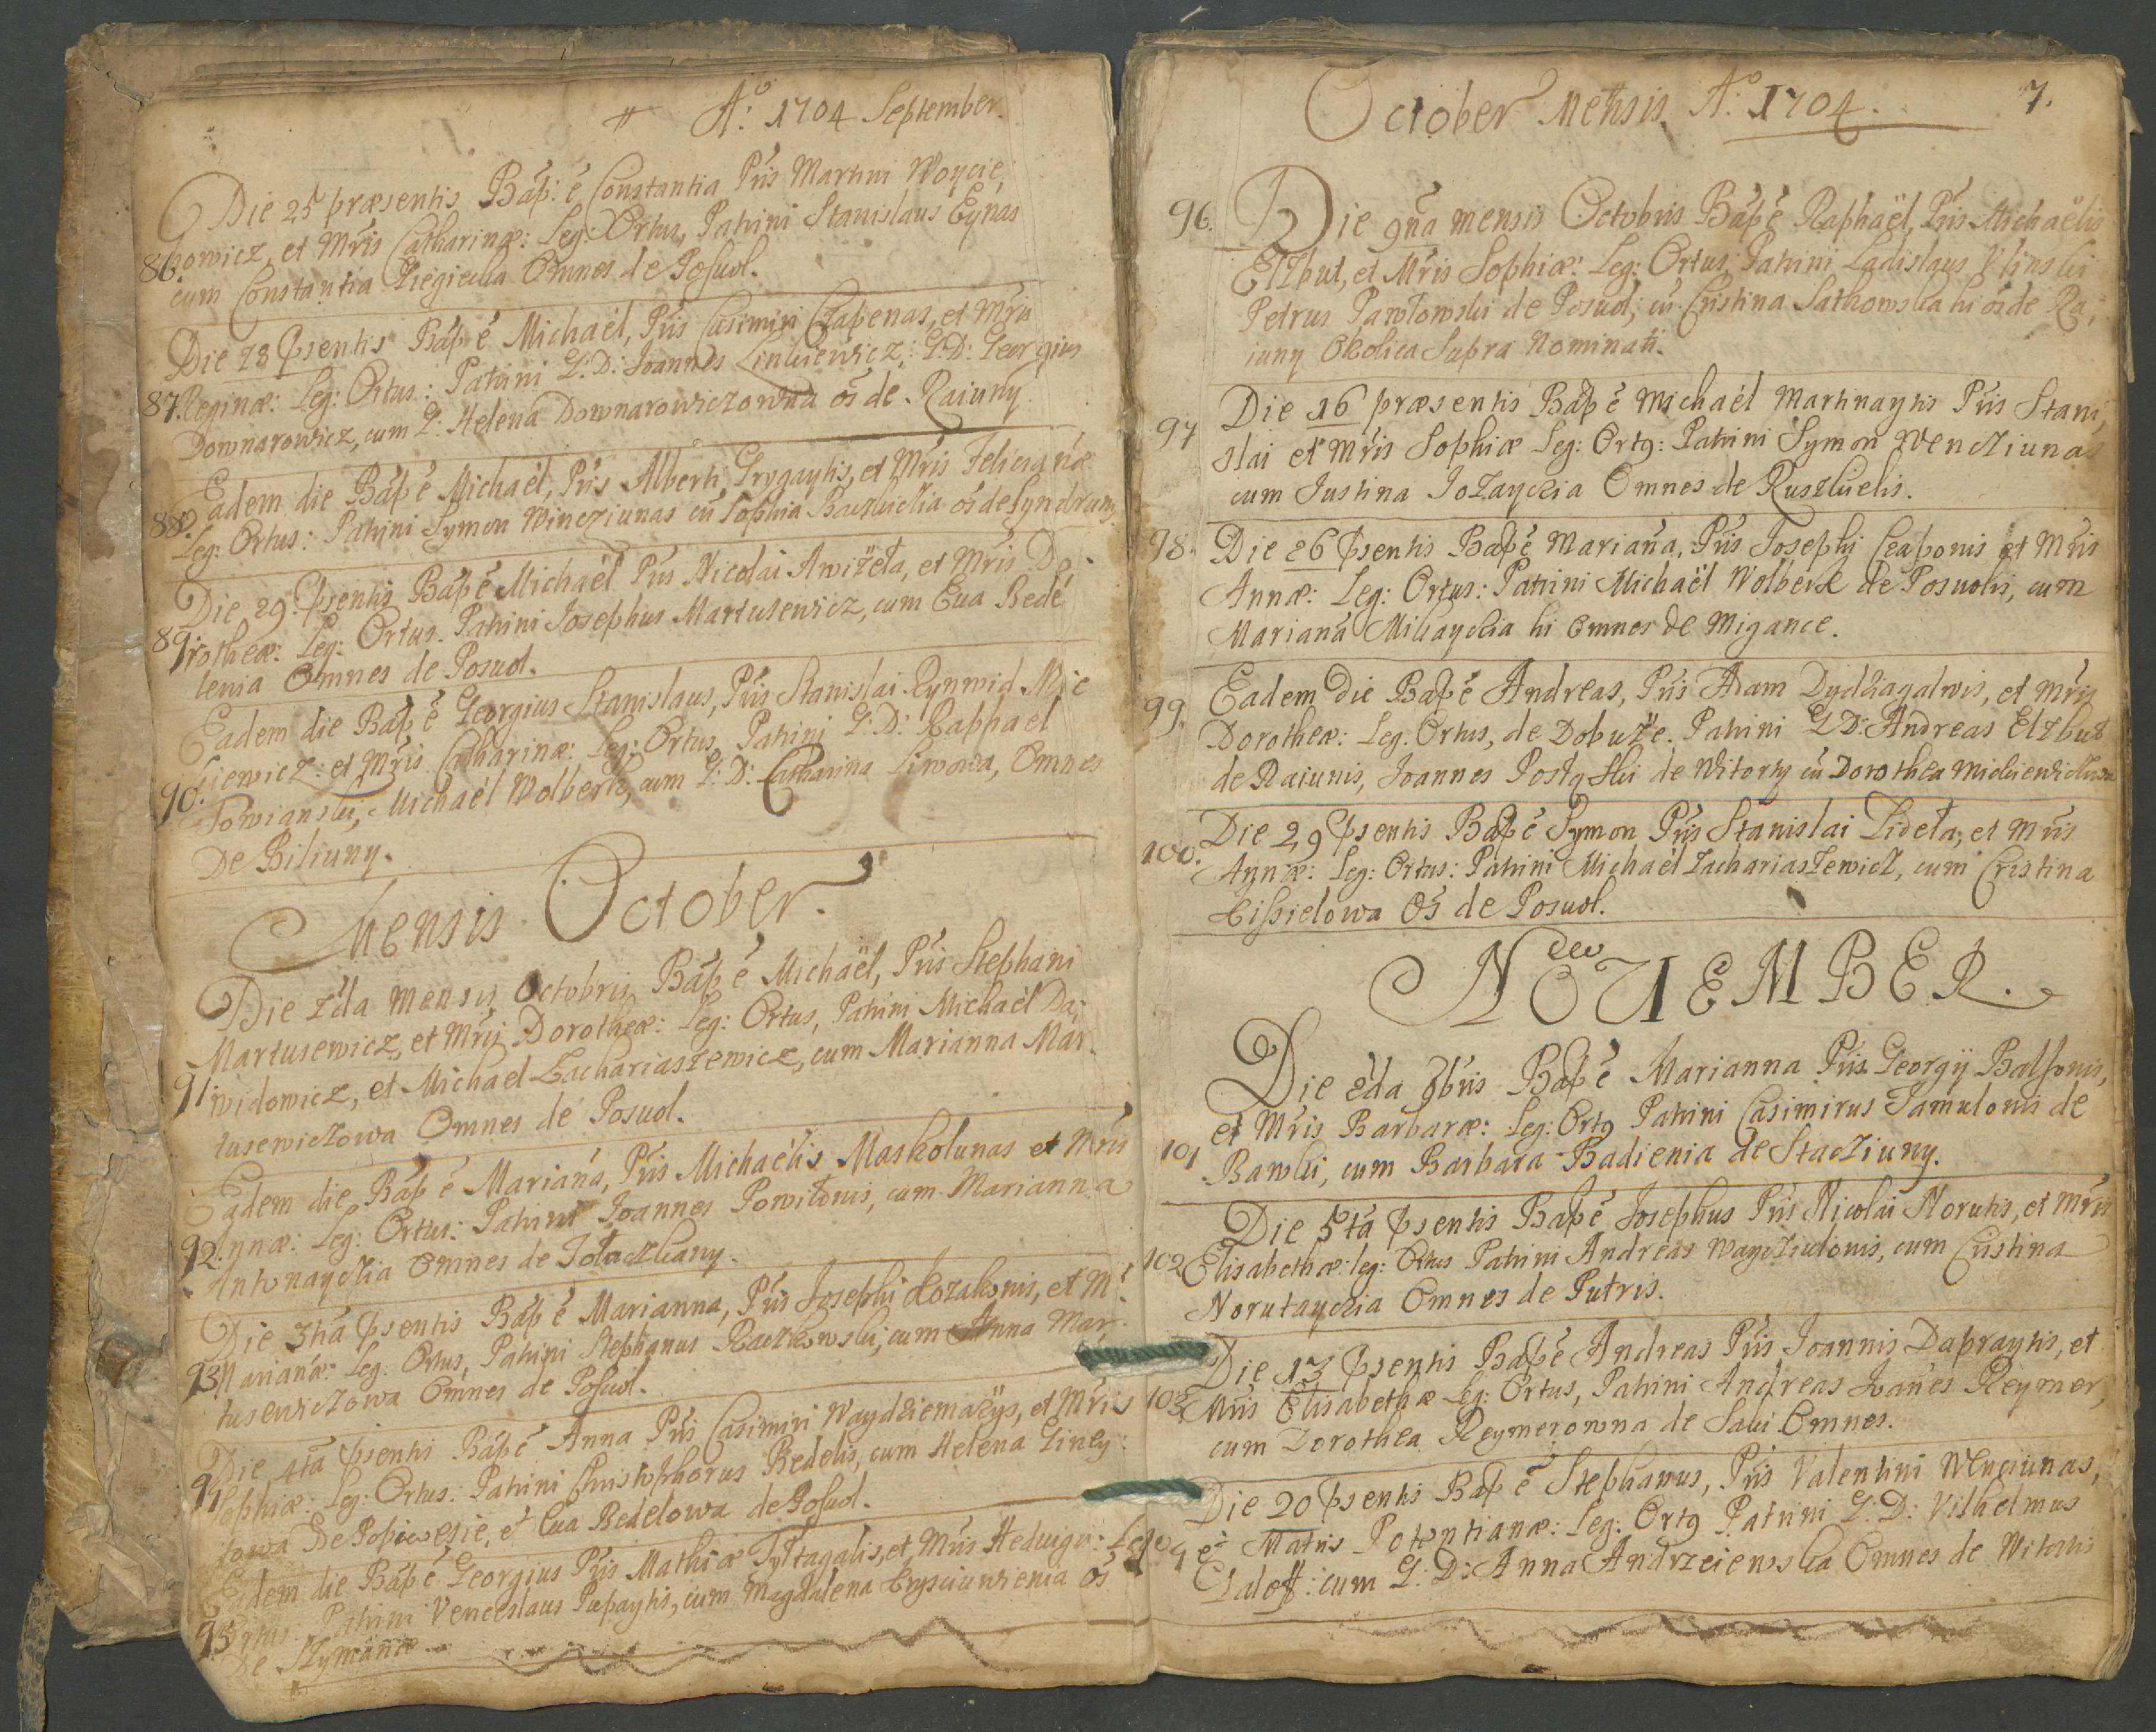 A.o 1704 September.
Die 25 præsentis Bap: é Constantia P̃ris Martini Woycie,
86. howicz, et Mr̃is Catharinæ: Leg: Ortus, Patrini Stanislaus Eynas
cum Constantia Omnes de Posuol.
Die 28 p̃sentis Bap é Michaël, P̃ris Casimiri Czapenas, et Mr̃is
87. Reginæ: Leg: Ortus: Patrini G: D: Joannes Linkiewicz, G: D: Georgius
Downarowicz, cum G: Helena Downarowiczowna os de Raiuny
Eadem die Bap é Michaël, P̃ris Alberti Grygaytis, et Mr̃is Felicianæ
88. Leg: Ortus: Patrini Symon Wincziunas cũ Sophia os de Gyndruny
Die 29 p̃sentis Bap é Michaël P̃ris Nicolai Awiżeła, et Mr̃is Do-
89. rotheæ: Leg: Ortus. Patrini Josephus Martusewicz, cum Eua Bede
lenia Omnes de Posuol.
Eadem die Bap é Georgius Stanislaus, P̃ris Stanislai Rynwid Mic
90. kiewicz: et Mr̃is Catharinæ: Leg: Ortus, Patrini G: D: Raphael
Towianski, Michaël Wolbek, cum G: D: Catharina Siwowa, Omnes
De Biliuny.
Mensis October.
Die 2da Mensis Octobris Bap é Michaël, P̃ris Stephani
Martusewicz, et Mr̃is Dorotheæ: Leg: Ortus, Patrini Michaël Da,
91. widowicz, et Michael Zachariaszewicz, cum Marianna Mar-
tusewiczowa Omnes de Posuol.
Eadem die Bap é Mariaña, P̃ris Michaëlis Maskolunas et Mr̃is
92. Annæ: Leg: Ortus: Patrini Joannes Powiłonis, cum Marianna
Antonayczia Omnes de
Die 3tia p̃sentis Bap é Marianna, P̃ris Josephi Kozakonis, et M:
93. Marianæ: Leg: Ortus, Patrini Stephanus Raczkowski, cum Anna Mar-
tusewiczowa Omnes de Posuol.
Die 4ta p̃sentis Bap é Anna P̃ris Casimiri Waydziemażys, et Mr̃is
94 Sophiæ: Leg: Ortus: Patrini Christophorus Bedelis, cum Helena Giney-
towa De et Eua Bedelowa de Posuol.
Eadem die Bap é Georgius P̃ris Mathiæ Tyltagalis, et Mr̃is Hedwigis: Leg
95 Ortus: Patrini Venceslaus Pupaytis, cum Magdalena Krysciunienia os
De Szymance
October Mensis A.o 1704. 7.
96. Die 9na mensis Octobris Bap é Raphaël, P̃ris Michaëlis
Elzbut, et Mr̃is Sophiæ: Leg: Ortus, Patrini Ladislaus Ulinski
Petrus Pawłowski de Posuol, cũ Cristina Satkowska hi os de Ra,
iuny Okolica Supra Nominati.
97 Die 16 præsentis Bap é Michaël Martinaytis P̃ris Stani,
slai et Mr̃is Sophiæ Leg: Ort9: Patrini Symon Wencziunas
cum Iustina Jozayczia Omnes de Ruszkielis.
98. Die 26 p̃sentis Bap é Mariaña, P̃ris Josephi Czaponis et Mr̃is
Annæ: Leg: Ortus: Patrini Michaël Wolbek de Posuolis, cum
Mariana Mikayczia hi omnes de Migance.
99. Eadem Die Bap é Andreas, P̃ris Adam Dydzagalwis, et Mr̃is
Dorotheæ: Leg. Ortus, de Dobuże. Patrini G D: Andreas Elzbut
de Raiunis, Joannes de Witorty cũ Dorothea
100. Die 29 p̃sentis Bap é Symon P̃ris Stanislai Zideła, et Mr̃is
Annæ: Leg: Ortus: Patrini Michaël Zachariaszewicz, cum Cristina
Kissielowa os de Posuol.
NOUEMBER.
Die 2da 9bris Bap é Marianna P̃ris Georgij Balsonis,
et Mr̃is Barbaræ: Leg: Ort9 Patrini Casimirus Jamulonis de
101 Bawki, cum Barbara Badienia de Stacziuny.
Die 5ta p̃sentis Bap é Josephus P̃ris Nicolai Norutis, et Mr̃is
102 Elisabethæ: leg: Ortus Patrini Andreas Wayciulonis, cum Cristina
Norutayczia Omnes de Putris.
Die 13 p̃sentis Bap é Andreas P̃ris Joannis Dapraytis, et
103 Mr̃is Elisabethæ Leg: Ortus, Patrini Andreas Joañes Reymer,
cum Dorothea Reymerowna de Saki Omnes.
Die 20 p̃sentis Bap é Stephanus, P̃ris Valentini Wenciunas,
104 et Matris Potentianæ: Leg: Ort9 Patrini G: D: Vilhelmus
cum G: D: Anna Andrzeiewska Omnes de Witortis